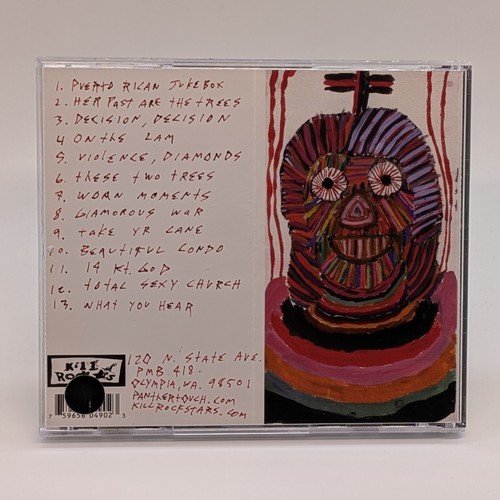 1. PUERTO RICAN JUKEBOX
2. HER PAST ARE THE TREES
3. DECISION, DECISION
4 ON THE LAM
5. VIOLENCE, DIAMONDS
6. THESE TWO TREES
7. WORN MOMENTS
8. GLAMOROUS WAR
9. TAKE YR LANE
10. BEAUTIFUL CONDO
11. 14 KT. GOD
12. TOTAL SEXY CHURCH
13. WHAT YOU HEAR
KILL
120 N. STATE AVE.
PMB 418.
OLYMPIA, WA. 98501
PANTHERTOUCH.COM
KILLROCKSTARS.COM
7 59656 04902 3